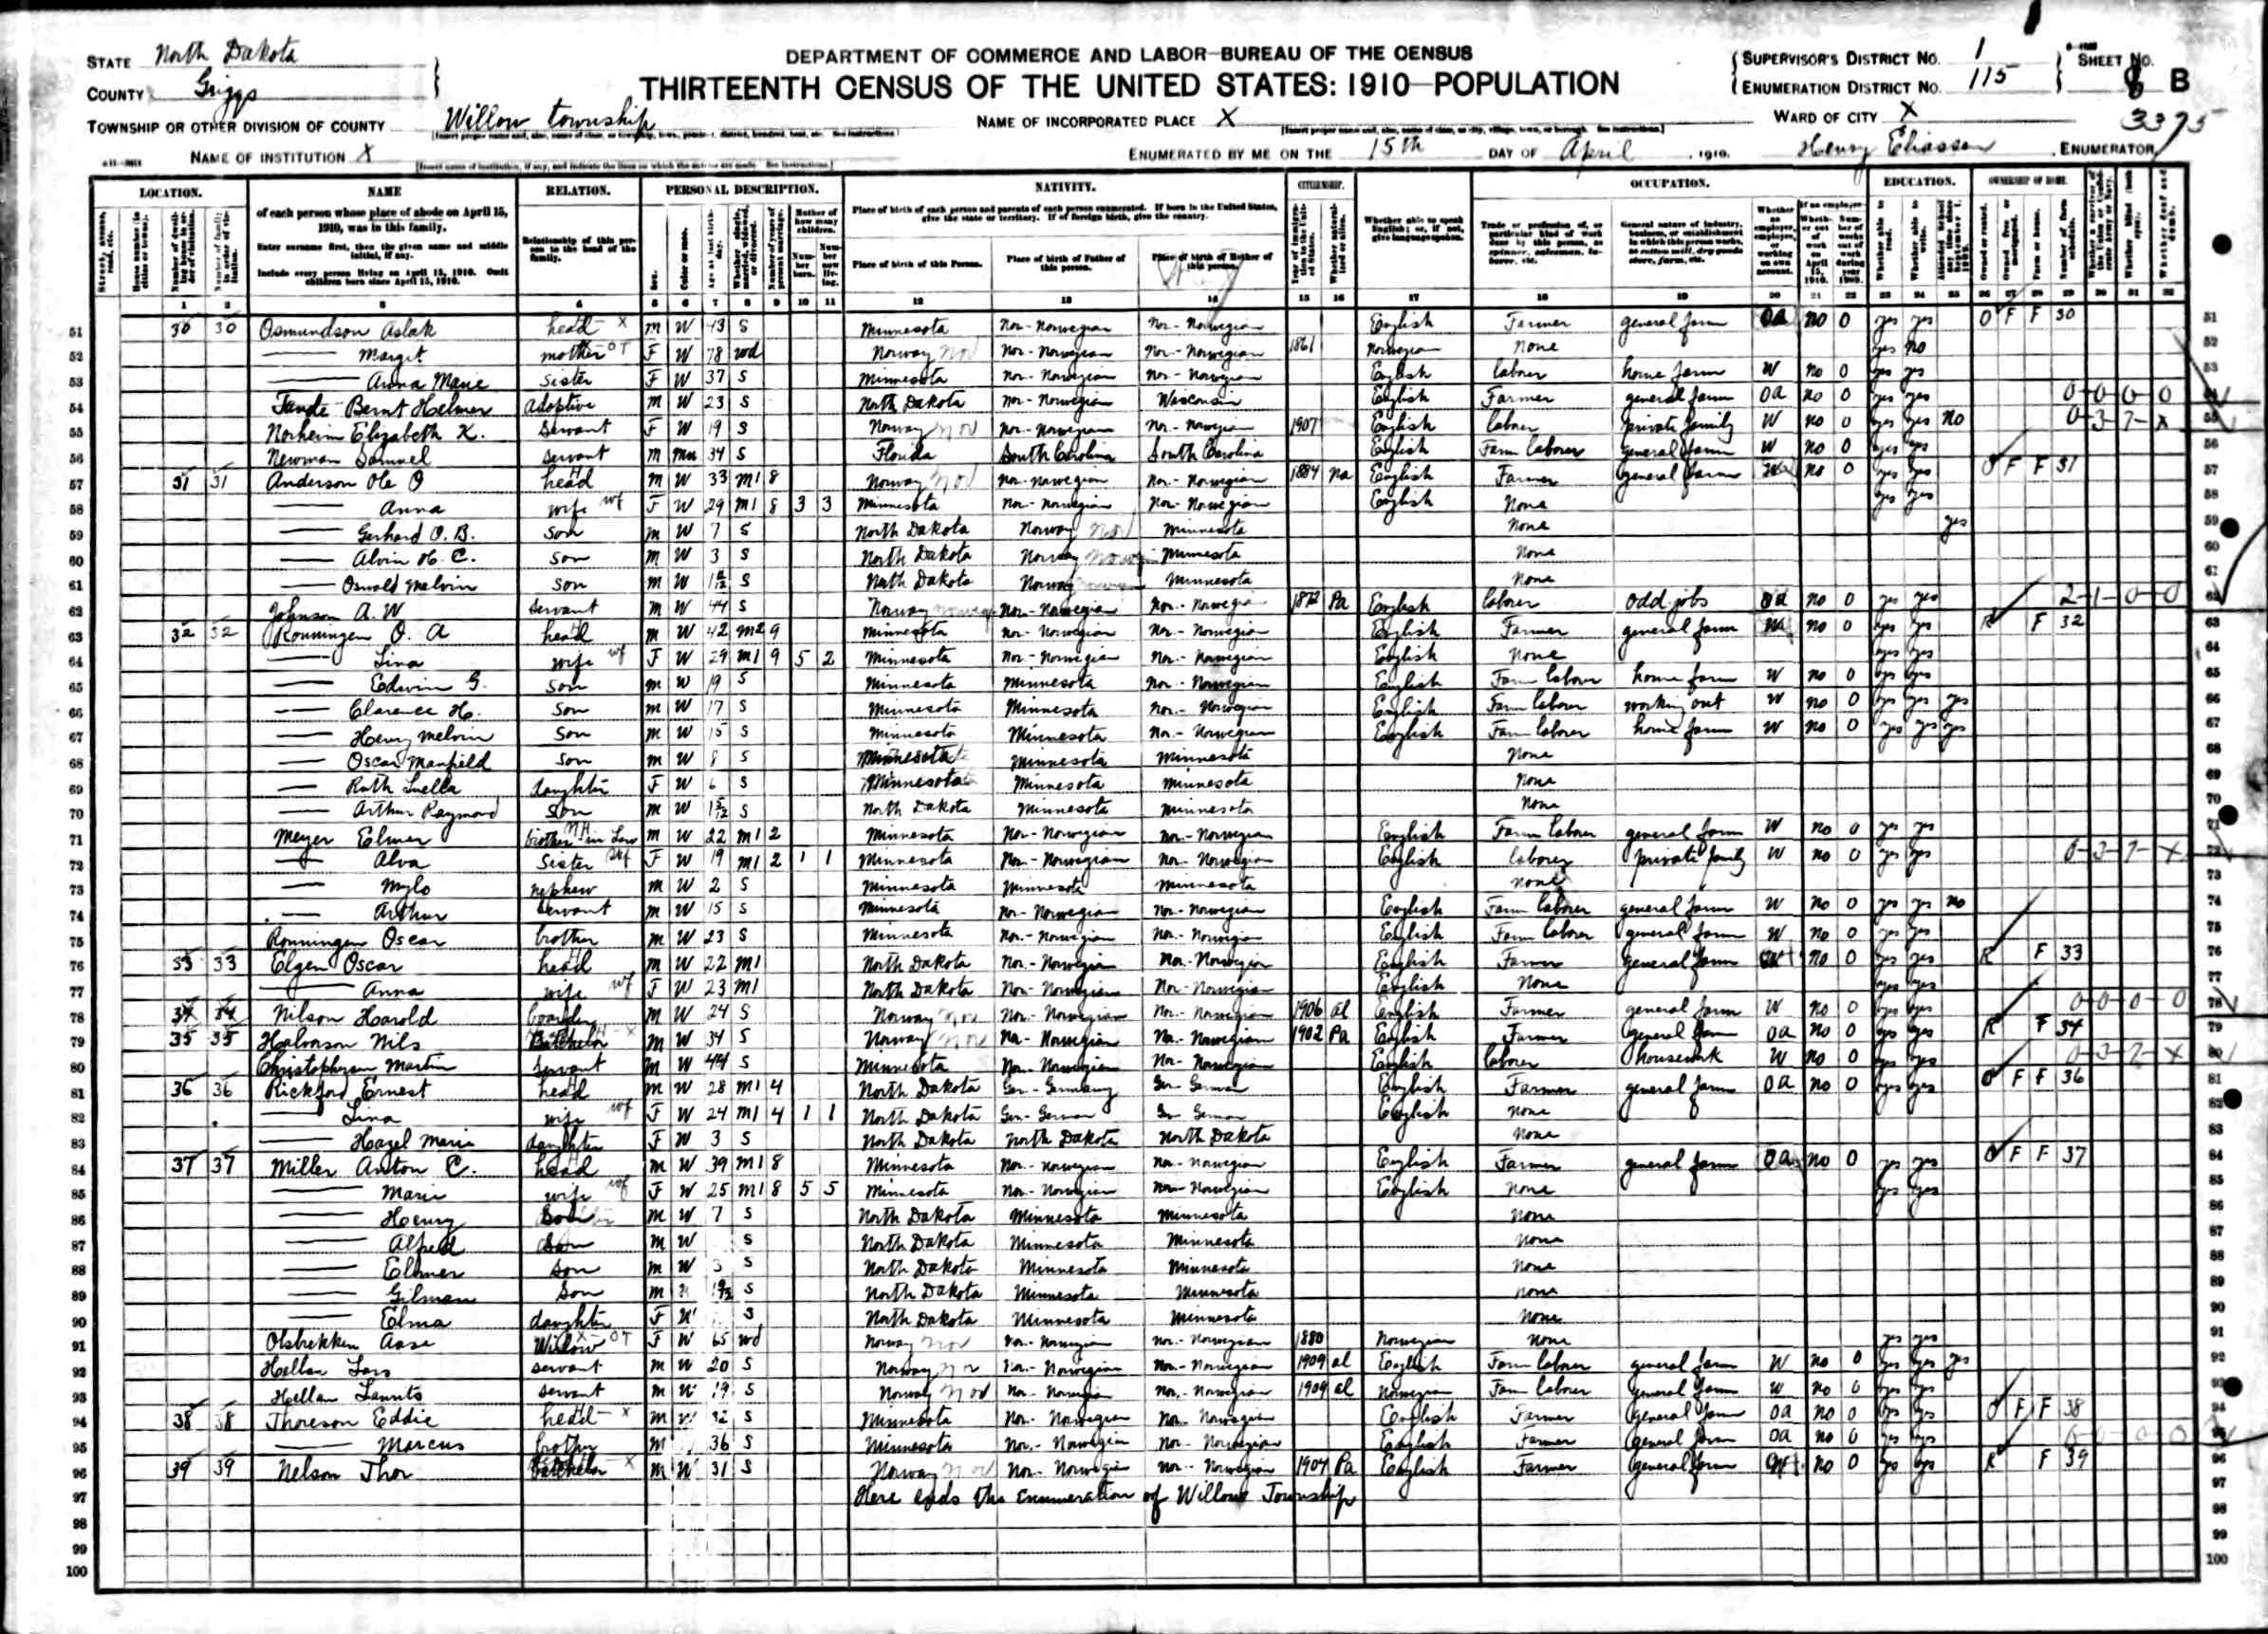 STATE North Dakota
COUNTY Griggs
TOWNSHIP OR OTHER DIVISION OF COUNTY Willow township
NAME OF INSTITUTION X
DEPARTMENT OF COMMERCE AND LABOR—BUREAU OF THE CENSUS
THIRTEENTH CENSUS OF THE UNITED STATES: 1910—POPULATION
NAME OF INCORPORATED PLACE X
ENUMERATED BY ME ON THE 15th DAY OF April, 1910. Henry Eliassen, ENUMERATOR
SUPERVISOR'S DISTRICT No. 1
ENUMERATION DISTRICT No. 115
SHEET No. 8 B
WARD OF CITY X
3375
LOCATION. NAME RELATION. PERSONAL DESCRIPTION. NATIVITY. CITIZENSHIP. OCCUPATION. EDUCATION. OWNERSHIP OF HOME.
of each person whose place of abode on April 15, 1910, was in this family.
Enter surname first, then the given name and middle initial, if any.
Include every person living on April 15, 1910. Omit children born since April 15, 1910.
Relationship of this person to the head of the family.
Place of birth of each person and parents of each person enumerated. If born in the United States, give the state or territory. If of foreign birth, give the country.
Place of birth of this Person. Place of birth of Father of this person. Place of birth of Mother of this person.
1 2 3 4 5 6 7 8 9 10 11 12 13 14 15 16 17 18 19 20 21 22 23 24 25 26 27 28 29 30 31 32
51 30 30 Osmundson Aslak head m W 43 S Minnesota Nor-Norwegian Nor-Norwegian English Farmer general farm oa no 0 yes yes O F F 30
52 — Margit mother F W 78 wd Norway Nor-Norwegian Nor-Norwegian 1861 Norwegian None yes no
53 — Anna Marie Sister F W 37 S Minnesota Nor-Norwegian Nor-Norwegian English laborer home farm W no 0 yes yes
54 Bernt Helmer adoptive m W 23 S North Dakota Nor-Norwegian Wisconsin English Farmer general farm oa no 0 yes yes 0-0-0-0
55 Norheim Elizabeth K. Servant F W 19 S Norway Nor-Norwegian Nor-Norwegian 1907 English laborer private family W no 0 yes yes no 0-3-7-x
56 Newman Samuel servant m mu 34 S Florida South Carolina South Carolina English Farm laborer general farm W no 0 yes yes
57 31 31 Anderson Ole O head m W 33 m1 8 Norway Nor-Norwegian Nor-Norwegian 1884 na English Farmer general farm no 0 yes yes O F F 31
58 — Anna wife F W 29 m1 8 3 3 Minnesota Nor-Norwegian Nor-Norwegian English None yes yes
59 — Gerhard O. B. Son m W 7 S North Dakota Norway Minnesota None yes
60 — Alvin H. C. Son m W 3 S North Dakota Norway Minnesota None
61 — Oswald Melvin Son m W S North Dakota Norway Minnesota None
62 Johnson A. W servant m W 44 S Norway Nor-Norwegian Nor-Norwegian 1872 Pa English laborer odd jobs oa no 0 yes yes 2-1-0-0
63 32 32 Ronningen O. A head m W 42 m2 9 Minnesota Nor-Norwegian Nor-Norwegian English Farmer general farm no 0 yes yes R F 32
64 — Lina wife F W 29 m1 9 5 2 Minnesota Nor-Norwegian Nor-Norwegian English None yes yes
65 — Edwin G. Son m W 19 S Minnesota Minnesota Nor-Norwegian English Farm laborer home farm W no 0 yes yes
66 — Clarence H. Son m W 17 S Minnesota Minnesota Nor-Norwegian English Farm laborer working out W no 0 yes yes yes
67 — Henry Melvin Son m W 15 S Minnesota Minnesota Nor-Norwegian English Farm laborer home farm W no 0 yes yes yes
68 — Oscar Manfield Son m W 8 S Minnesota Minnesota Minnesota None
69 — Ruth Luella daughter F W 6 S Minnesota Minnesota Minnesota None
70 — Arthur Raymond Son m W S North Dakota Minnesota Minnesota None
71 Meyer Elmer brother in Law m W 22 m1 2 Minnesota Nor-Norwegian Nor-Norwegian English Farm laborer general farm W no 0 yes yes
72 — Alva Sister F W 19 m1 2 1 1 Minnesota Nor-Norwegian Nor-Norwegian English laborer private family W no 0 yes yes 0-3-7-x
73 — Mylo nephew m W 2 S Minnesota Minnesota Minnesota None
74 — Arthur servant m W 15 S Minnesota Nor-Norwegian Nor-Norwegian English Farm laborer general farm W no 0 yes yes no
75 Ronningen Oscar brother m W 23 S Minnesota Nor-Norwegian Nor-Norwegian English Farm laborer general farm W no 0 yes yes
76 33 33 Elgen Oscar head m W 22 m1 North Dakota Nor-Norwegian Nor-Norwegian English Farmer general farm no 0 yes yes R F 33
77 — Anna wife F W 23 m1 North Dakota Nor-Norwegian Nor-Norwegian English None yes yes
78 34 34 Nilson Harold boarder m W 24 S Norway Nor-Norwegian Nor-Norwegian 1906 al English Farmer general farm W no 0 yes yes 0-0-0-0
79 35 35 Halvorson Nils Batchelor m W 34 S Norway Nor-Norwegian Nor-Norwegian 1902 Pa English Farmer general farm oa no 0 yes yes R F 34
80 Christopherson Martin servant m W 44 S Minnesota Nor-Norwegian Nor-Norwegian English laborer housework W no 0 yes yes 0-3-7-x
81 36 36 Rickford Ernest head m W 28 m1 4 North Dakota Ger-Germany Ger-German English Farmer general farm oa no 0 yes yes O F F 36
82 — Lina wife F W 24 m1 4 1 1 North Dakota Ger-German Ger German English None
83 — Hazel Marie daughter F W 3 S North Dakota North Dakota North Dakota None
84 37 37 Miller Anton C. head m W 39 m1 8 Minnesota Nor-Norwegian Nor-Norwegian English Farmer general farm oa no 0 yes yes O F F 37
85 — Marie wife F W 25 m1 8 5 5 Minnesota Nor-Norwegian Nor-Norwegian English None yes yes
86 — Henry Son m W 7 S North Dakota Minnesota Minnesota None
87 — Alfred Son m W S North Dakota Minnesota Minnesota None
88 — Elmer Son m W 3 S North Dakota Minnesota Minnesota None
89 — Gilman Son m S North Dakota Minnesota Minnesota None
90 — Elma daughter F W S North Dakota Minnesota Minnesota None
91 Olsbekken Aase Widow F W 65 wd Norway Nor-Norwegian Nor-Norwegian 1880 Norwegian None yes yes
92 Hellan Lars servant m W 20 S Norway Nor-Norwegian Nor-Norwegian 1909 al English Farm laborer general farm W no 0 yes yes yes
93 Hellan Laurits servant m W 19 S Norway Nor-Norwegian Nor-Norwegian 1909 al Norwegian Farm laborer general farm W no 0 yes yes
94 38 38 Thoreson Eddie head m W 32 S Minnesota Nor-Norwegian Nor-Norwegian English Farmer general farm oa no 0 yes yes O F F 38
95 — Marcus brother m 36 S Minnesota Nor-Norwegian Nor-Norwegian English Farmer general farm oa no 0 yes yes 0-0-0-0
96 39 39 Nelson Thor batchelor m W 31 S Norway Nor-Norwegian Nor-Norwegian 1904 Pa English Farmer general farm no 0 yes yes R F 39
97 Here ends the enumeration of Willow Township
98
99
100